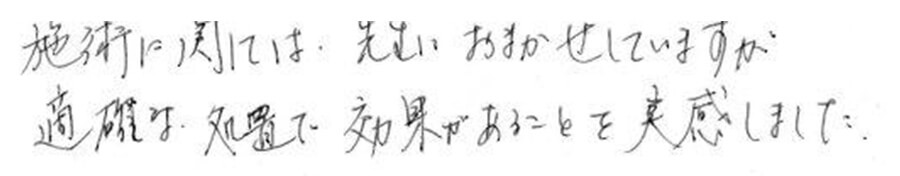 施術に関しては、先生におまかせしていますが
適確な処置で効果があることを実感しました。